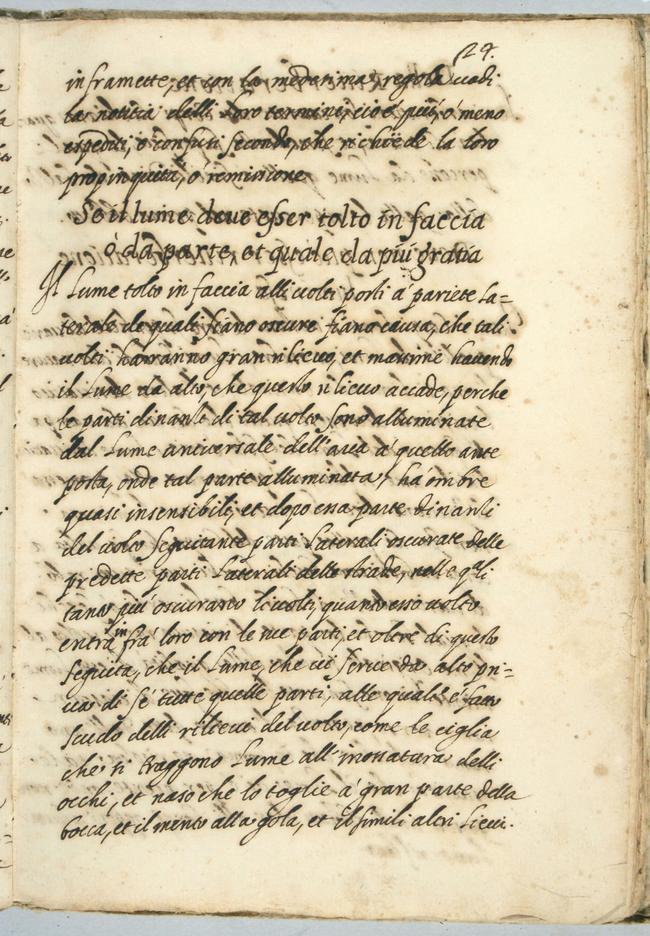 24.
inframette, et con la medesima regola vedi
la notitia delli loro termini, cioè più, ò meno
espediti, o confusi secondo, che richiede la loro
propinquità, ò remissione
Se il lume deue esser tolto in faccia
ò da parte, et quale da più gratia
Il Lume tolto in faccia alli uolti posti á pariete La=
terale de quali siano oscure fiano causa, che tali
uolti harranno gran rilieuo, et massime hauendo
il Lume da alto, che questo rilieuo accade, perche
le parti dinanti di tal uolto sono alluminate
dal Lume uniuersale dell'aria á quello ante
posta, onde tal parte alluminata há ombre
quasi insensibili, et dopo essa parte dinanti
del uolto seguitano parti Laterali oscurate delle
predette parti Laterali delle strade, nelle q.li
tanto più oscurano li uolti, quanto esso uolto
entra in frà loro con le sue parti, et oltre di questo
seguita, che il Lume, che ui scende da alto pri=
ua di sé tutte quelle parti, alle quali è fatto
scudo delli rilieui del uolto, come le ciglia
che ti traggono Lume all'inossatura delli
occhi, et naso che lo toglie á gran parte della
bocca, et il mento alla gola, et il simili altri Lieui.